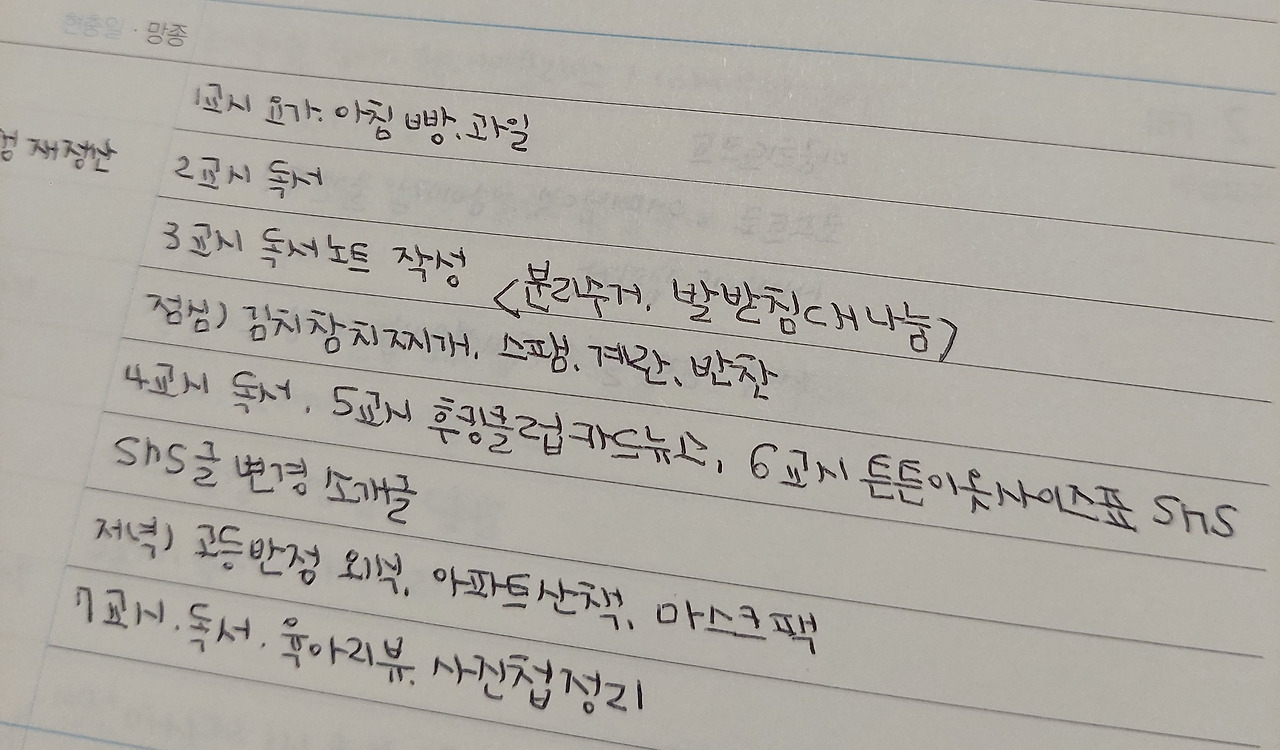 현충일 · 망종
1교시 요가. 아침 빵. 과일
재정산
2교시 독서
3교시 독서노트 작성 <분리수거. 발받침대나눔>
점심) 김치참치찌개. 스팸. 계란. 반찬
4교시 독서. 5교시 카드뉴스, 6교시 튼튼이웃사이즈표 SNS
SNS글 변경 소개글
저녁) 고등반정 외식. 아파트산책. 마스크팩
7교시. 독서. 육아리뷰. 사진첩정리